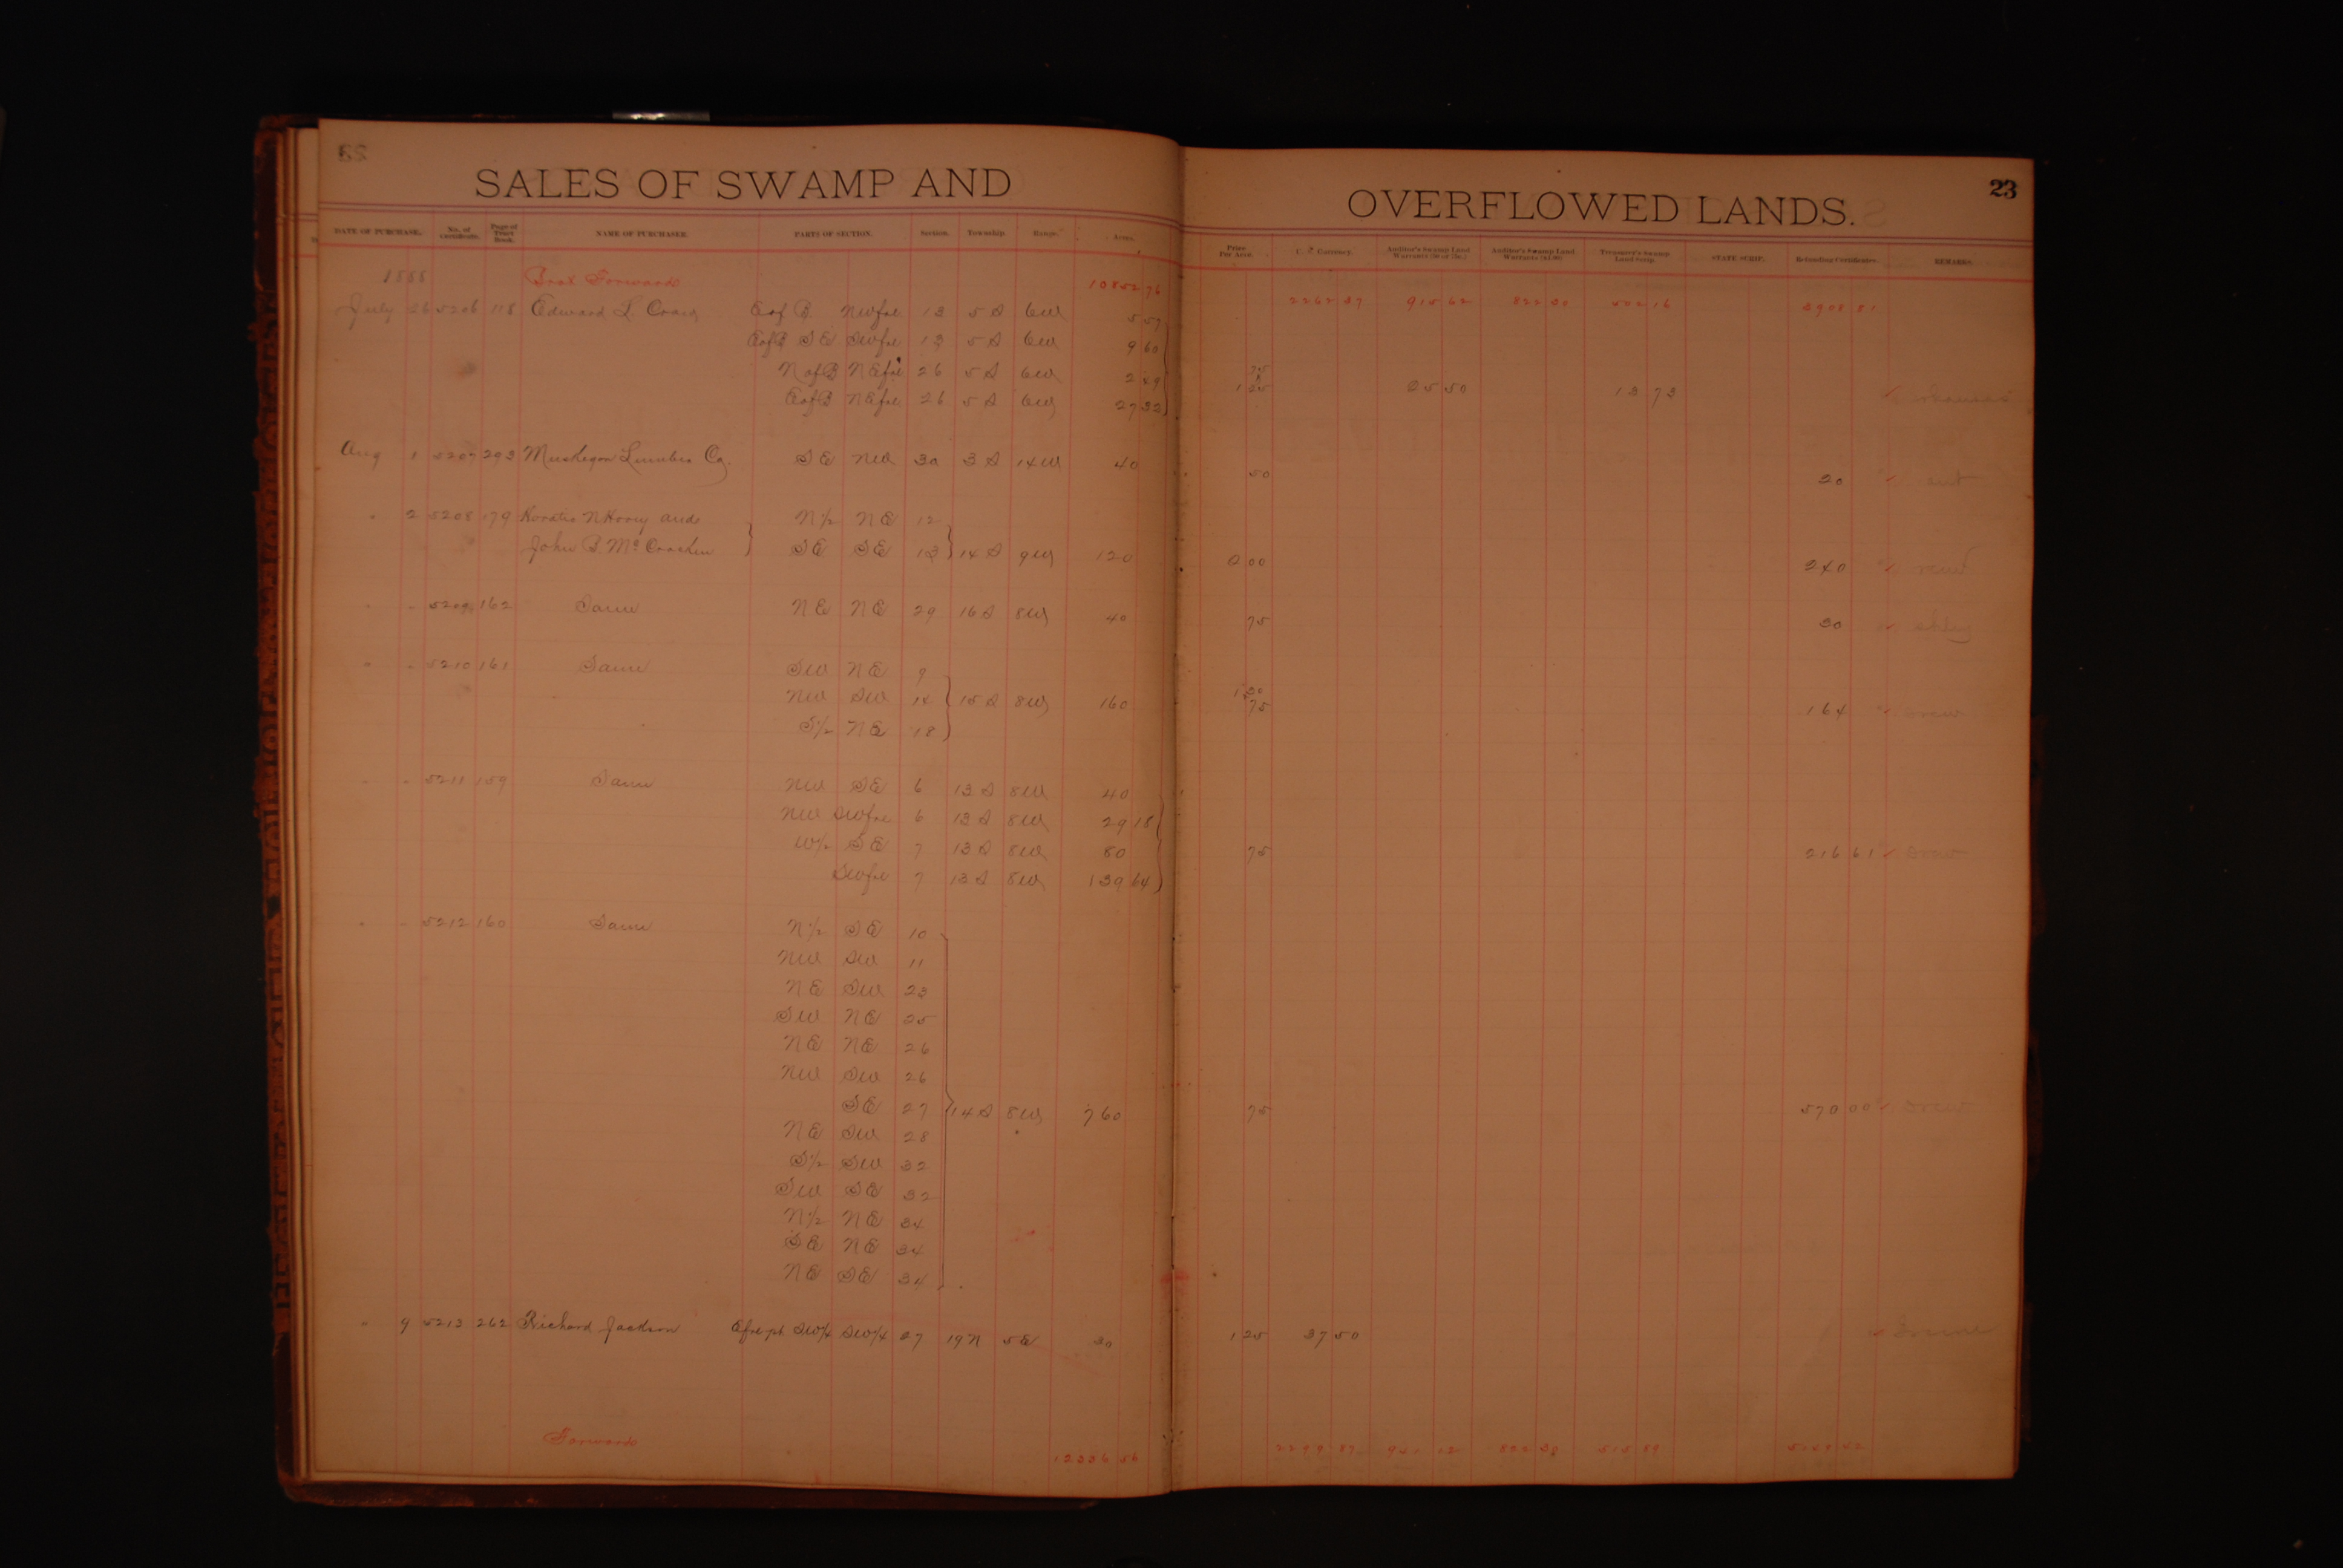 SALES OF SWAMP AND OVERFLOWED LANDS.
23
DATE OF PURCHASE. No. of Certificate. Page of Tract Book. NAME OF PURCHASER. PARTS OF SECTION. Section. Township. Range. Acres. Price Per Acre. U.S. Currency. Auditor's Swamp Land Warrants Auditor's Swamp Land Warrants Treasurer's Swamp Land Scrip. STATE SCRIP. Refunding Certificates. REMARKS.
1888 Brot Forwards 10852 76 2262 37 915 62 822 30 502 16 3908 81
July 26 5206 118 Edward L. E of B NWfrl 13 5 S 6W 5 57
E of B SE SWfrl 13 5 S 6W 9 60
N of B NEfrl 26 5 S 6W 2 49 75 &
E of B NEfrl 26 5 S 6W 27 32 1 25 25 50 13 73
Aug 1 5207 293 Muskegon Lumber Co. SE NW 30 3 S 14W 40 50 20
" 2 5208 179 Horatio N Hovey and N 1/2 NE 12
John B McCracken SE SE 13 14 S 9W 120 2 00 240
" " 5209 162 Same NE NE 29 16 S 8W 40 75 30 Ashley
" " 5210 161 Same SW NE 9
NW SW 14 15 S 8W 160 75 164 Drew
S 1/2 NE 18
" " 5211 159 Same NW SE 6 13 S 8W 40
NW SWfrl 6 13 S 8W 29 18
W 1/2 SE 7 13 S 8W 80 75 216 61 Drew
SWfrl 7 13 S 8W 139 64
" " 5212 160 Same N 1/2 SE 10
NW SW 11
NE SW 23
SW NE 25
NE NE 26
NW SW 26
SE 27 14 S 8W 760 75 570 00 Drew
NE SW 28
S 1/2 SW 32
SW SE 32
N 1/2 NE 34
SE NE 34
NE SE 34
" 9 5213 262 Richard Jackson Efrl pt SW 1/4 SW 1/4 27 19 N 5 E 30 1 25 37 50 Greene
Forwards 12336 56 2299 87 941 12 822 30 515 89